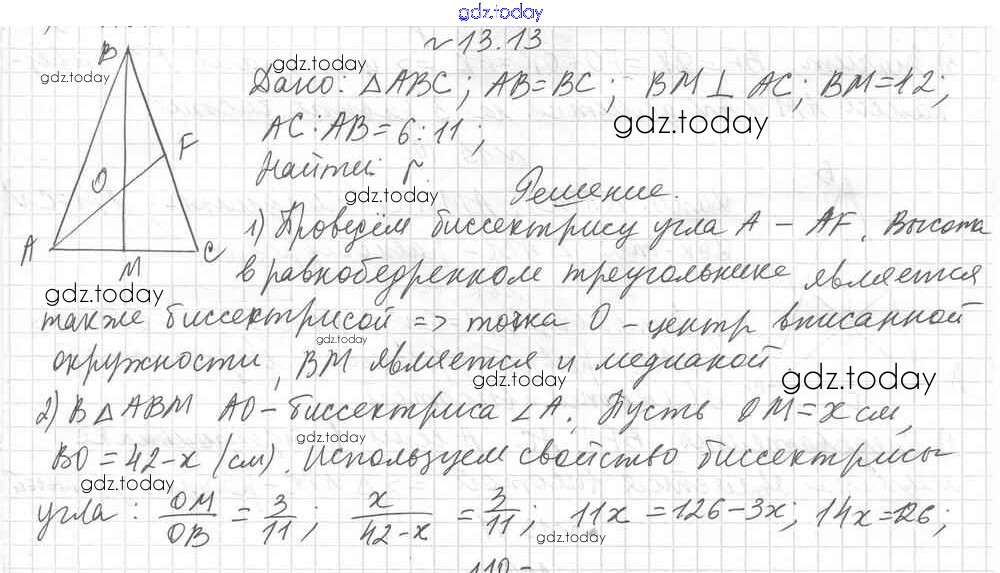 gdz.today
№ 13.13
B
gdz.today
gdz.today
Дано: △ABC; AB=BC; BM⊥AC; BM=12;
AC:AB=6:11;
gdz.today
F
Найти: r.
gdz.today
O
Решение.
1) Проведём биссектрису угла A – AF. Высота
A
C
M
в равнобедренном треугольнике является
gdz.today
также биссектрисой => точка O – центр вписанной
gdz.today
окружности, BM является и медианой
gdz.today
gdz.today
2) В △ABM AO – биссектриса ∠A. Пусть OM=x см,
gdz.today
BO = 42-x (см). Используем свойство биссектрисы
gdz.today
угла: OM/OB = 3/11; x/42-x = 3/11; 11x = 126-3x; 14x=126;
gdz.today